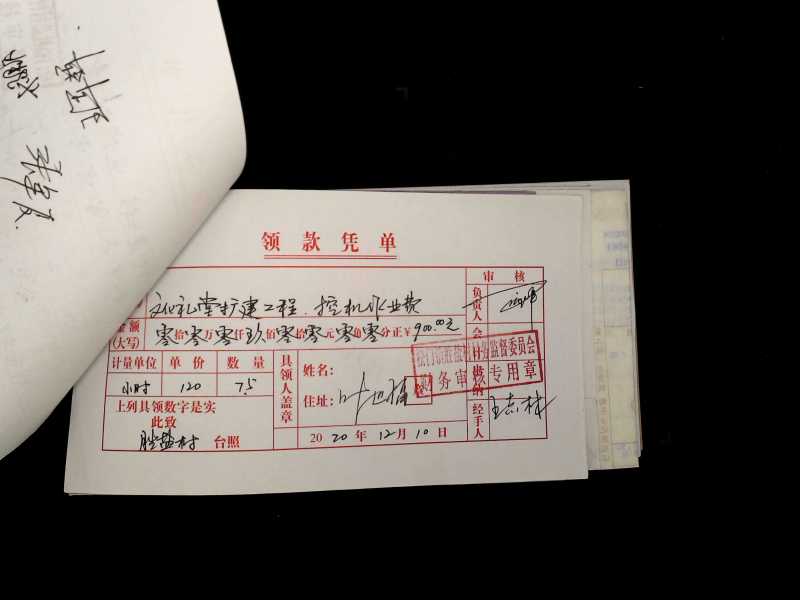 领款凭单
文化礼堂扩建工程、挖机作业费
审核
负责人
金额(大写) 零拾零万零仟玖佰零拾零元零角零分正¥900.00元
会
计量单位 单价 数量
小时 120 7.5
具领人盖章
姓名:
住址: 叶
财务监督委员会
财务审核专用章
纳
上列具领数字是实
此致
胜盐村 台照
2020年12月10日
经手人
王志林